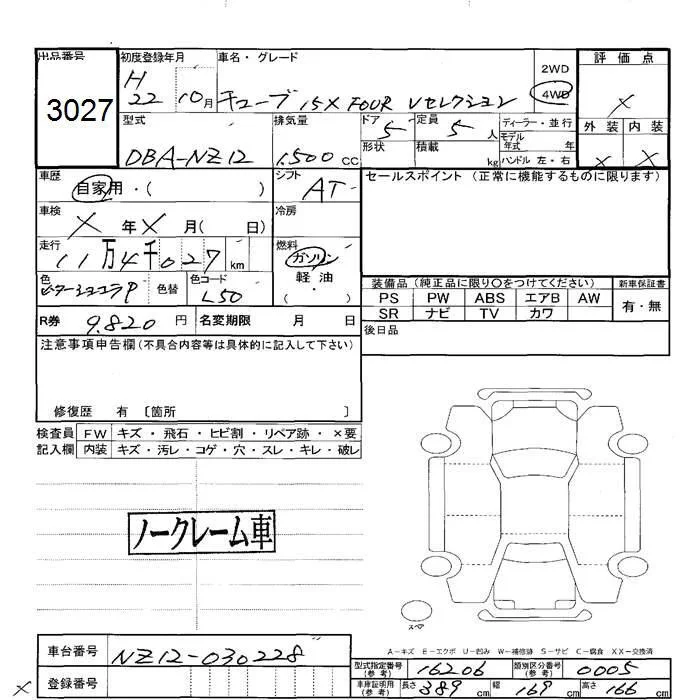 出品番号
3027
初度登録年月
H
22 10月
車名・グレード
キューブ 15X FOUR Vセレクション
2WD
4WD
評価点
X
外装 内装
X X
型式
DBA-NZ12
排気量
1,500 CC
ドア
5
定員
5 人
形状
積載
kg
ディーラー・並行
モデル
年式 年
ハンドル 左・右
車歴
自家用・( )
シフト
AT
セールスポイント (正常に機能するものに限ります)
車検
X 年 X 月( 日)
冷房
走行
11万4千027 km
燃料
ガソリン
軽油
( ・ )
色
ビターショコラP
色替
色コード
L50
装備品(純正品に限り○をつけてください)
新車保証書
PS PW ABS エアB AW
SR ナビ TV カワ
有・無
R券 9,820 円
名変期限 月 日
後日品
注意事項申告欄(不具合内容等は具体的に記入して下さい)
修復歴 有 〔箇所 〕
検査員
記入欄
FW キズ・飛石・ヒビ割・リペア跡・×要
内装 キズ・汚レ・コゲ・穴・スレ・キレ・破レ
ノークレーム車
スペア
A-キズ E-エクボ U-凹み W-補修跡 S-サビ C-腐食 XX-交換済
車台番号
NZ12-030228
X 登録番号
型式指定番号
(参考)
16206
類別区分番号
(参考)
0005
車庫証明用
(参考)
長さ 389 cm
幅 169 cm
高さ 166 cm